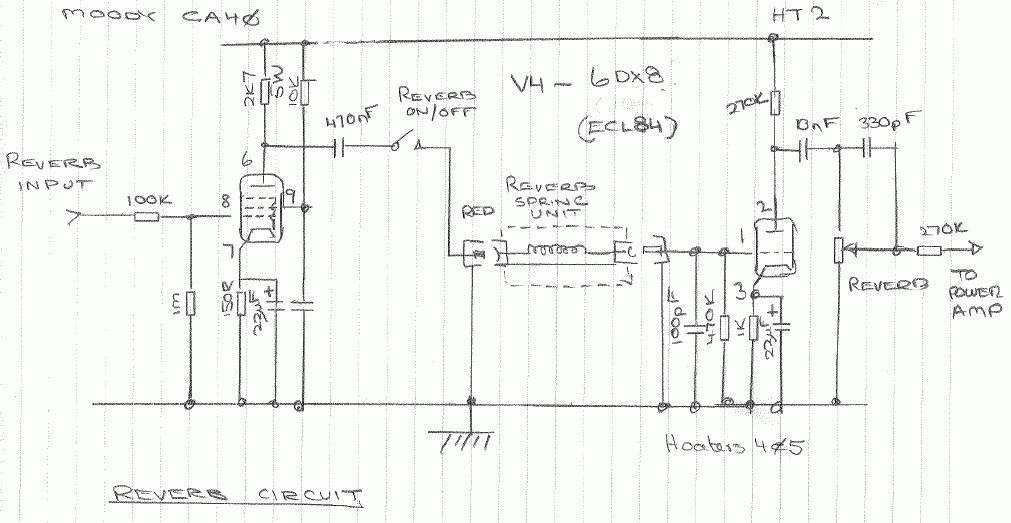 MOODY GA40
HT2
V4 - 6DX8
(ECL84)
2K7
5W
10K
470nF
REVERB
ON/OFF
270K
10nF
330pF
REVERB
INPUT
100K
6
8
9
7
REVERB
SPRING
UNIT
RED
2
1
3
270K
REVERB
TO
POWER
AMP
1M
150R
22µF
+
100pF
470K
1K
22µF
+
Heaters 4&5
REVERB CIRCUIT